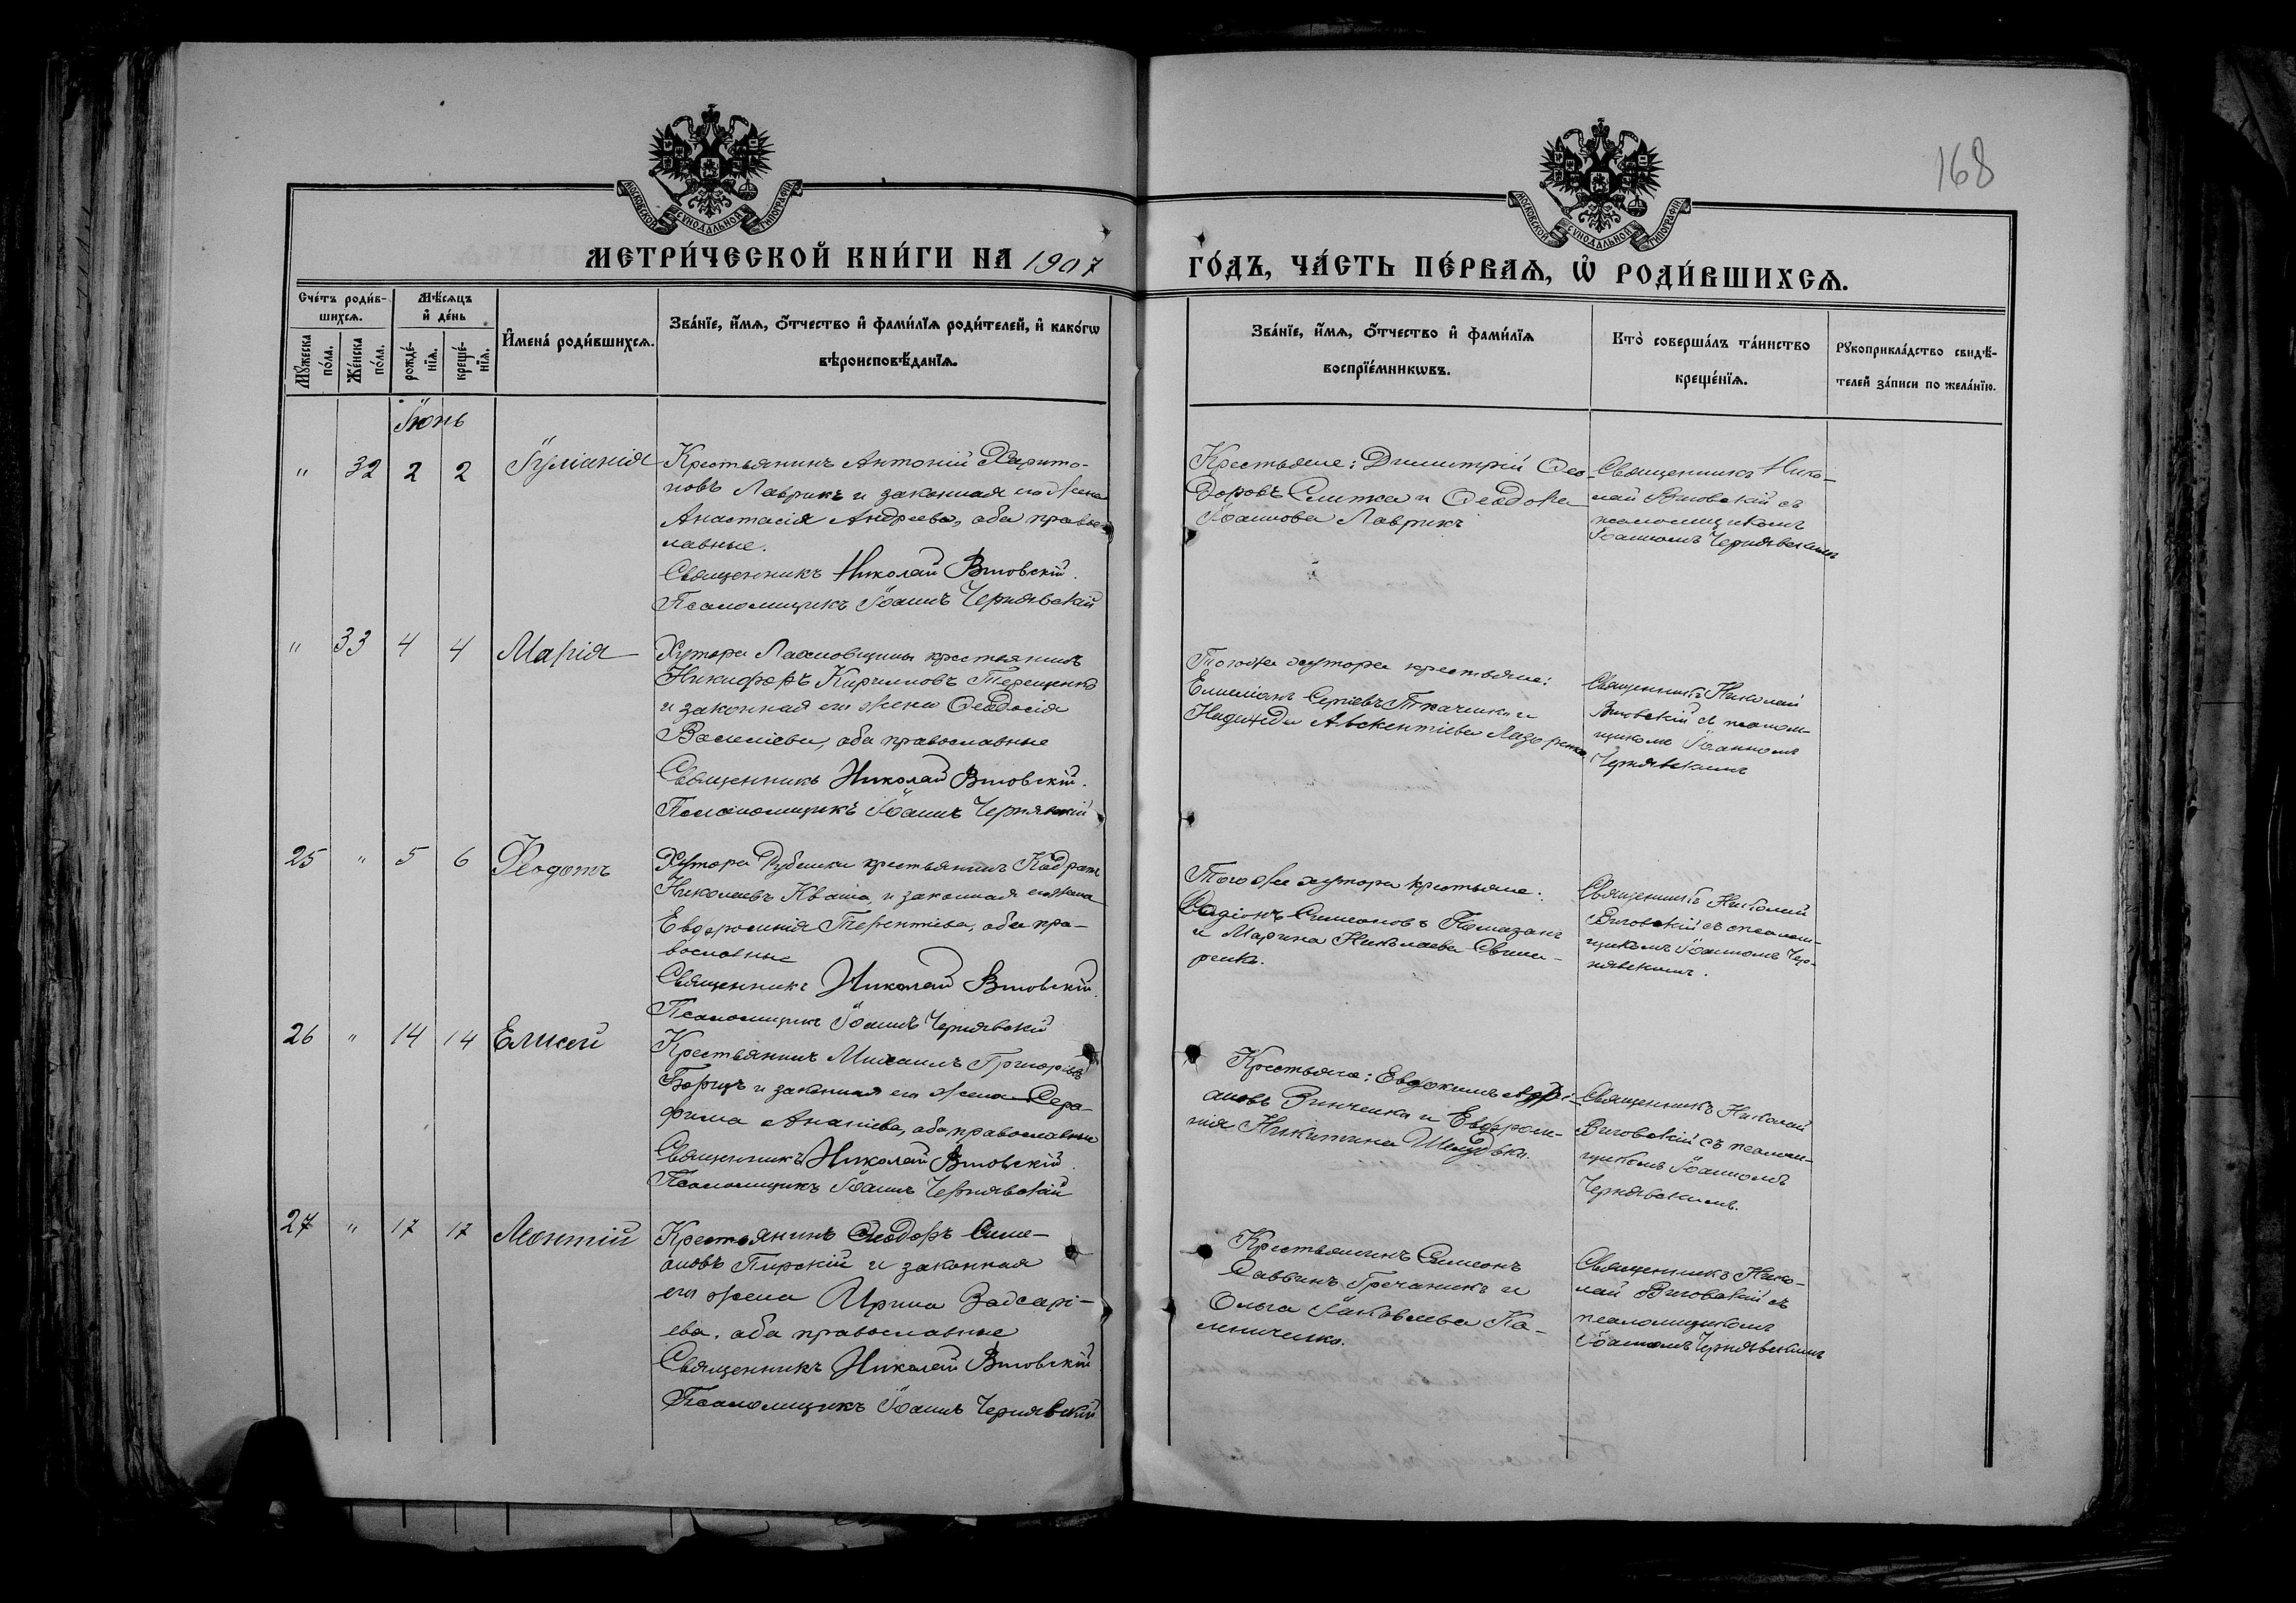 168
МОСКОВСКОЙ СѴНОДАЛЬНОЙ ТИПОГРАФІИ
МОСКОВСКОЙ СѴНОДАЛЬНОЙ ТИПОГРАФІИ
МЕТРИ́ЧЕСКОЙ КНИ́ГИ НА 1907
ГО́ДЪ, ЧА́СТЬ ПЕ́РВАѦ, Ѡ҆ РОДИ́ВШИХСѦ.
Сче́тъ роди́в-
шихсѧ.
Мѣ́сѧцъ
и҆ де́нь
Мꙋ́жеска
по́ла.
Же́нска
по́ла.
рожде́-
нїѧ.
креще́-
нїѧ.
И҆мена̀ роди́вшихсѧ.
Зва́нїе, и҆́мѧ, ѻ҆́тчество и҆ фами́лїѧ роди́телей, и҆ како́гѡ
вѣроисповѣ́данїѧ.
Зва́нїе, и҆́мѧ, ѻ҆́тчество и҆ фами́лїѧ
воспрїе́мникѡвъ.
Кто̀ соверша́лъ та́инство
креще́нїѧ.
Рꙋкоприкла́дство свидѣ́-
телей за́писи по жела́нїю.
Іюнь
" 32 2 2 Іуліанія
Крестьянинъ Антоній Харито-
новъ Лаврикъ и законная его жена
Анастасія Андреева, оба правос-
лавные.
Священникъ Николай
Псаломщикъ Іоаннъ Чернявскій
Крестьяне: Димитрій Ѳео-
доровъ и Ѳеодора
Іоаннова Лаврикъ
Священникъ Нико-
лай съ
псаломщикомъ
Іоанномъ Чернявскимъ
" 33 4 4 Марія
Хутора крестьянинъ
Никифоръ Кирилловъ Терещенко
и законная его жена Ѳеодосія
Васильева, оба православные
Священникъ Николай
Псаломщикъ Іоаннъ Чернявскій
Того же хутора крестьяне:
Емиліанъ Сергіевъ Ткаченко и
Надежда Авксентіева Лазоренко
Священникъ Николай
съ псалом-
щикомъ Іоанномъ
Чернявскимъ
25 " 5 6 Ѳеодотъ
Хутора крестьянинъ Кодратъ
Николаевъ Кваша и законная его жена
Евфросинія Терентіева, оба пра-
вославные
Священникъ Николай
Псаломщикъ Іоаннъ Чернявскій
Того же хутора крестьяне:
Родіонъ Симеоновъ Помазанъ
и Марина Николаева Свина-
ренко.
Священникъ Николай
съ псалом-
щикомъ Іоанномъ Чер-
нявскимъ.
26 " 14 14 Елисей
Крестьянинъ Михаилъ Григорьевъ
и законная его жена Сера-
фима Ананіева, оба православные
Священникъ Николай
Псаломщикъ Іоаннъ Чернявскій
Крестьяне: Евдокимъ Адрі-
ановъ Зинченко и Евфроси-
нія Никитина
Священникъ Николай
съ псалом-
щикомъ Іоанномъ
Чернявскимъ.
27 " 17 17 Леонтій
Крестьянинъ Ѳеодоръ Симе-
оновъ Пирскій и законная
его жена Ирина
ева, оба православные
Священникъ Николай
Псаломщикъ Іоаннъ Чернявскій
Крестьянинъ Симеонъ
Саввинъ Гречаникъ и
Ольга Іаковлева Ка-
линиченко.
Священникъ Нико-
лай съ
псаломщикомъ
Іоанномъ Чернявскимъ